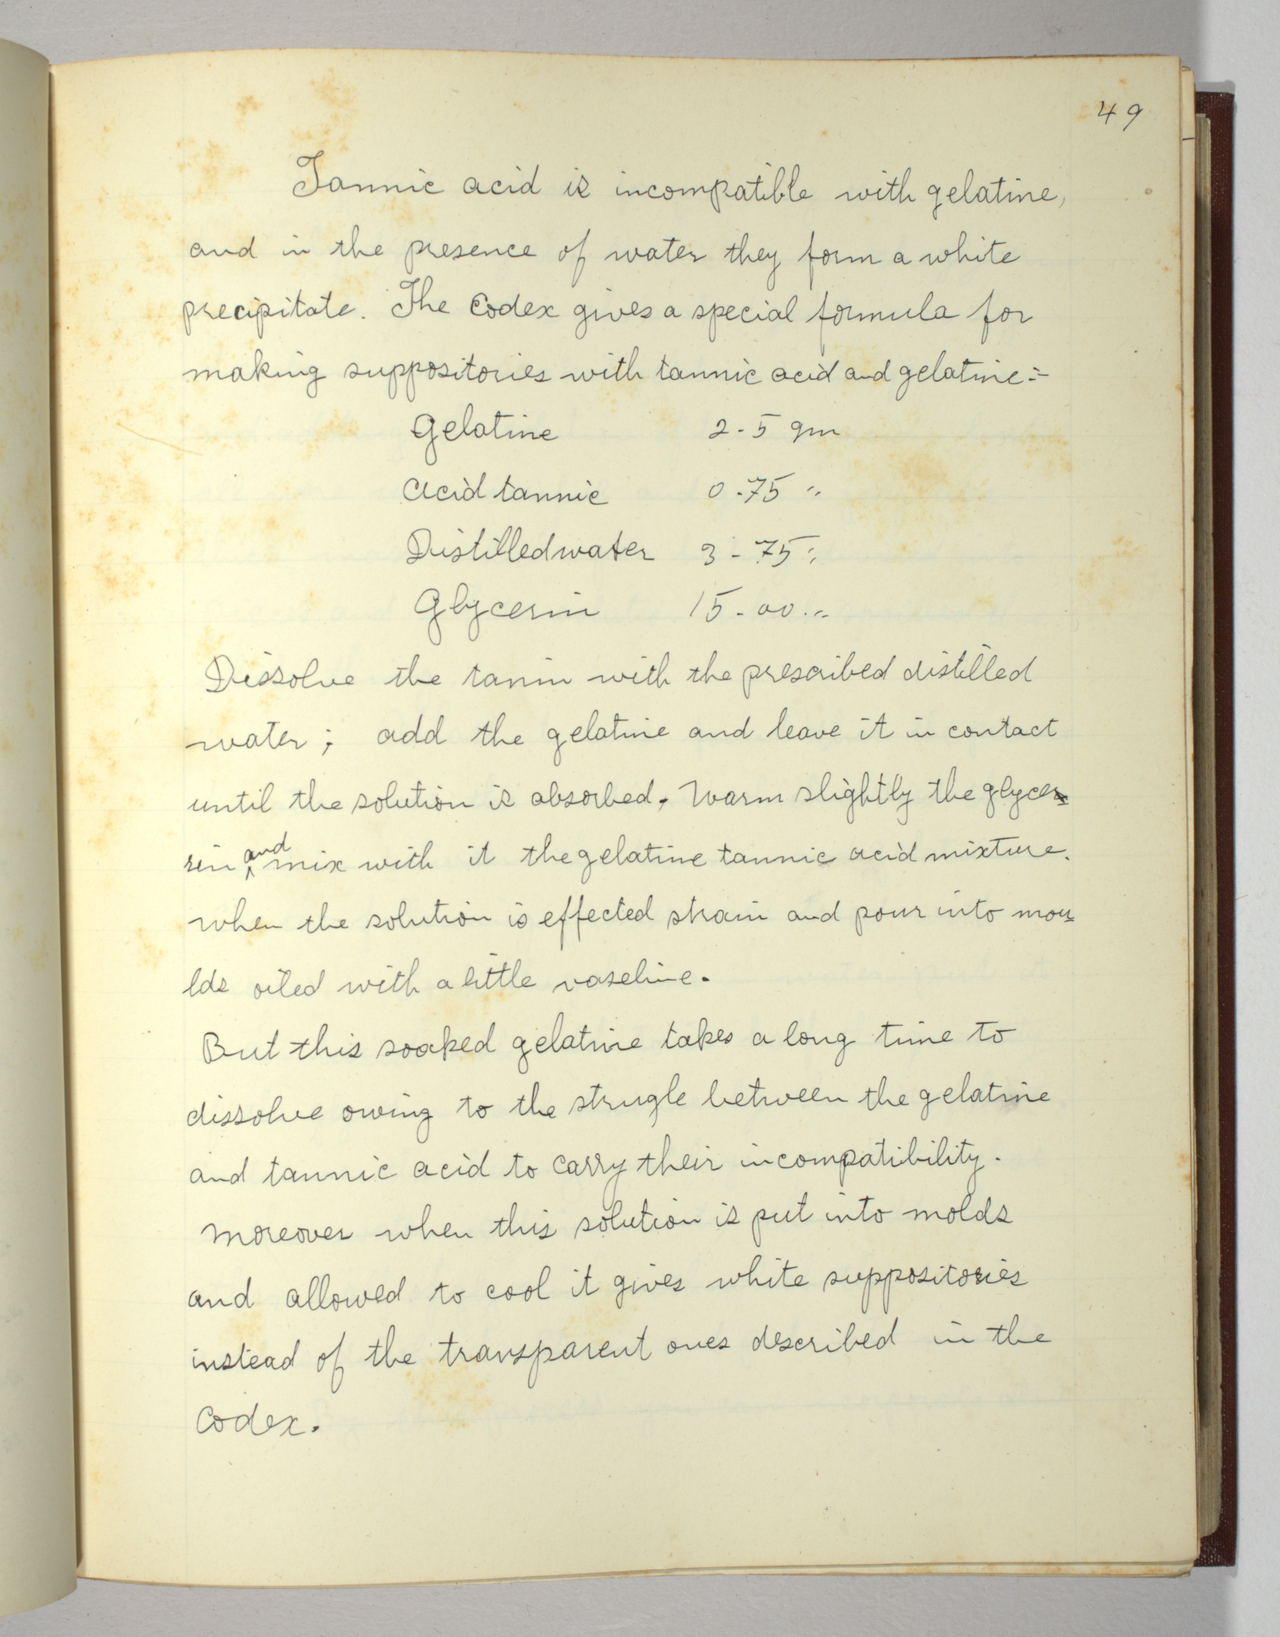 49
Tannic acid is incompatible with gelatine,
and in the presence of water they form a white
precipitate. The Codex gives a special formula for
making suppositories with tannic acid and gelatine:-
Gelatine 2-5 gm
Acid tannic 0-75 "
Distilled water 3-75 "
Glycerin 15-00 "
Dissolve the tanin with the prescribed distilled
water; add the gelatine and leave it in contact
until the solution is absorbed. Warm slightly the glyce-
rin and mix with it the gelatine tannic acid mixture.
when the solution is effected strain and pour into mou-
lds oiled with a little vaseline.
But this soaked gelatine takes a long time to
dissolve owing to the strugle between the gelatine
and tannic acid to carry their incompatibility.
Moreover when this solution is put into molds
and allowed to cool it gives white suppositories
instead of the transparent ones described in the
Codex.